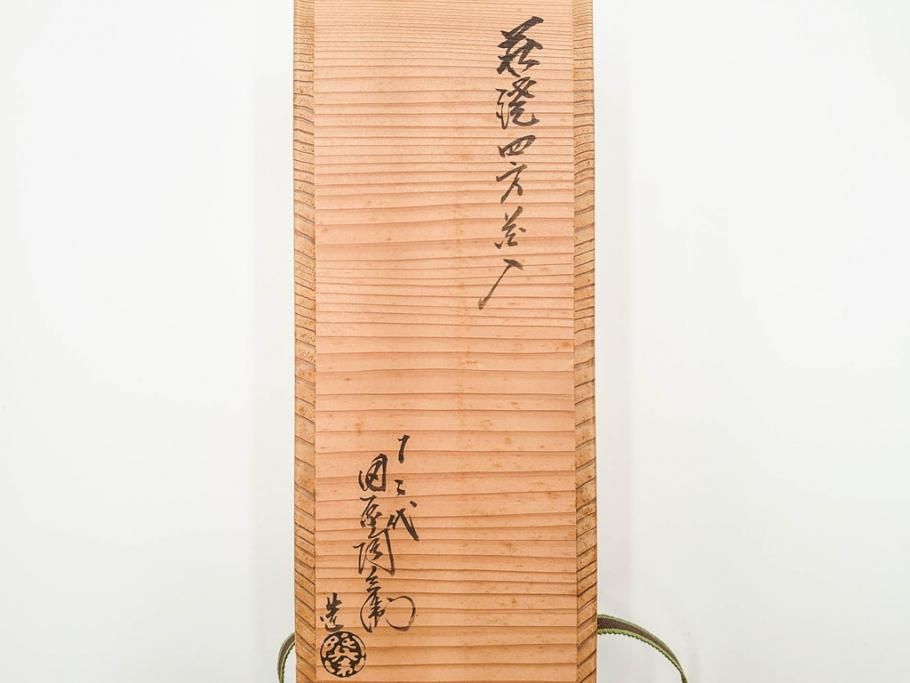 萩焼四方花入
十二代
田原陶兵衛
造